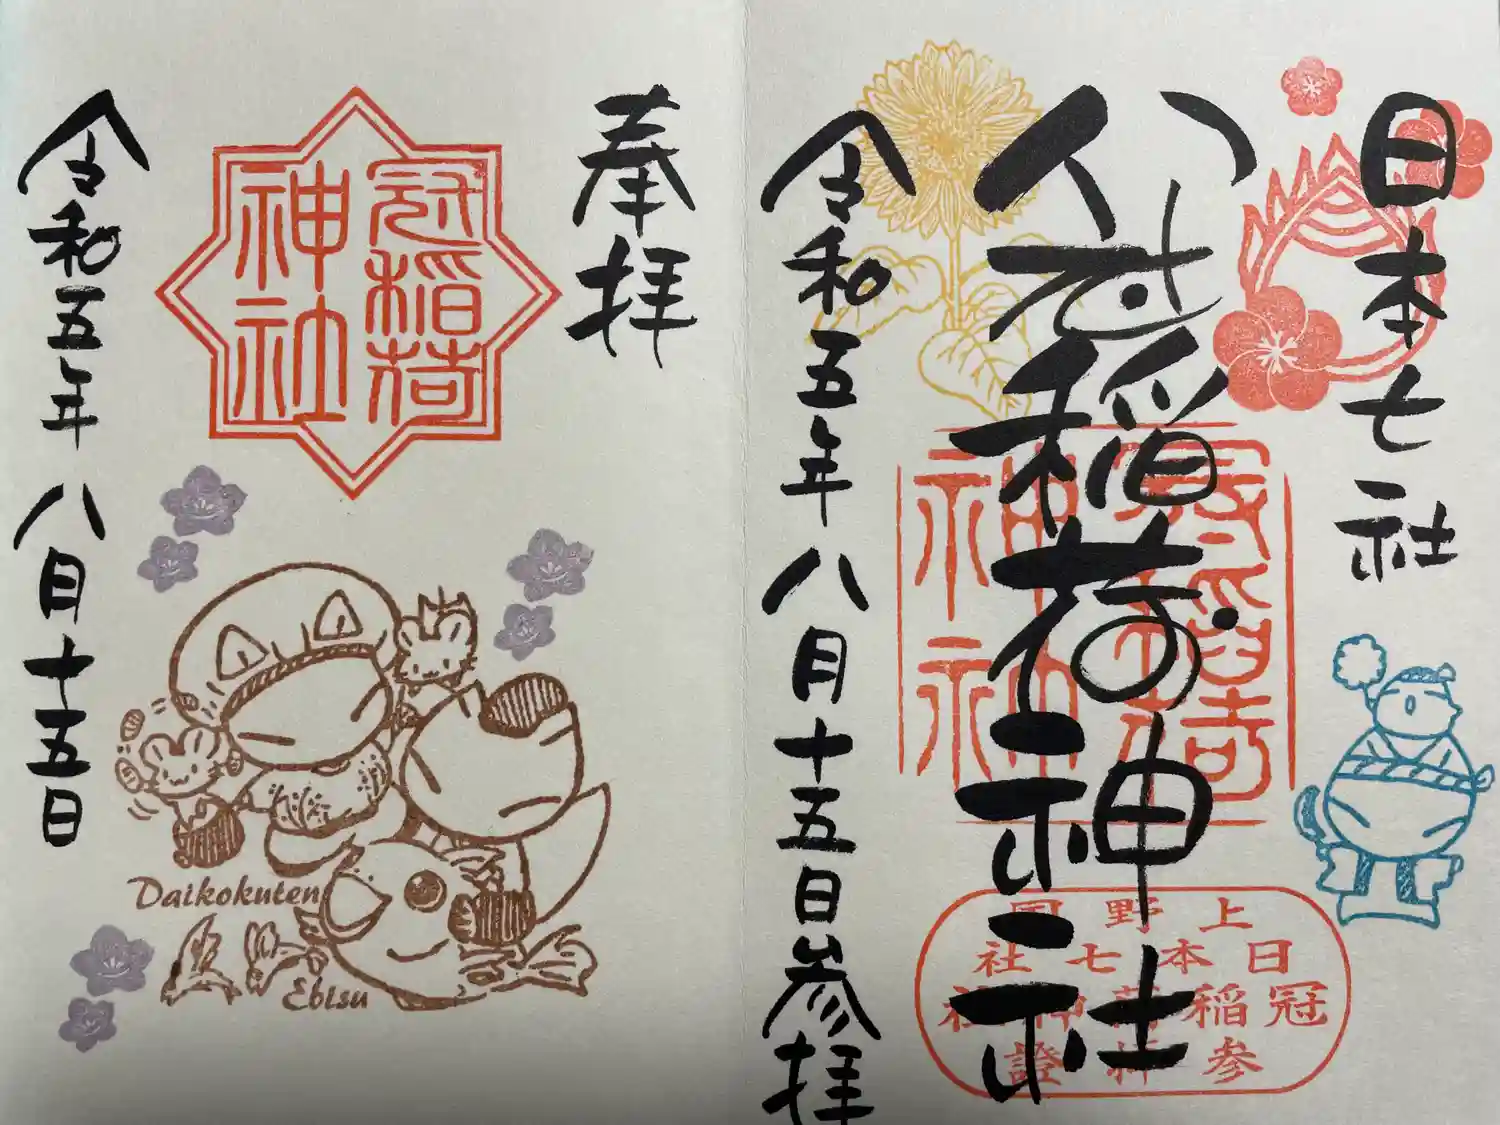 日本七社
冠稲荷神社
令和五年八月十五日参拝
冠稲荷
神社
上野国
日本七社
冠稲荷神社
参拝證
奉拝
冠稲荷
神社
令和五年八月十五日
Daikokuten
Ebisu